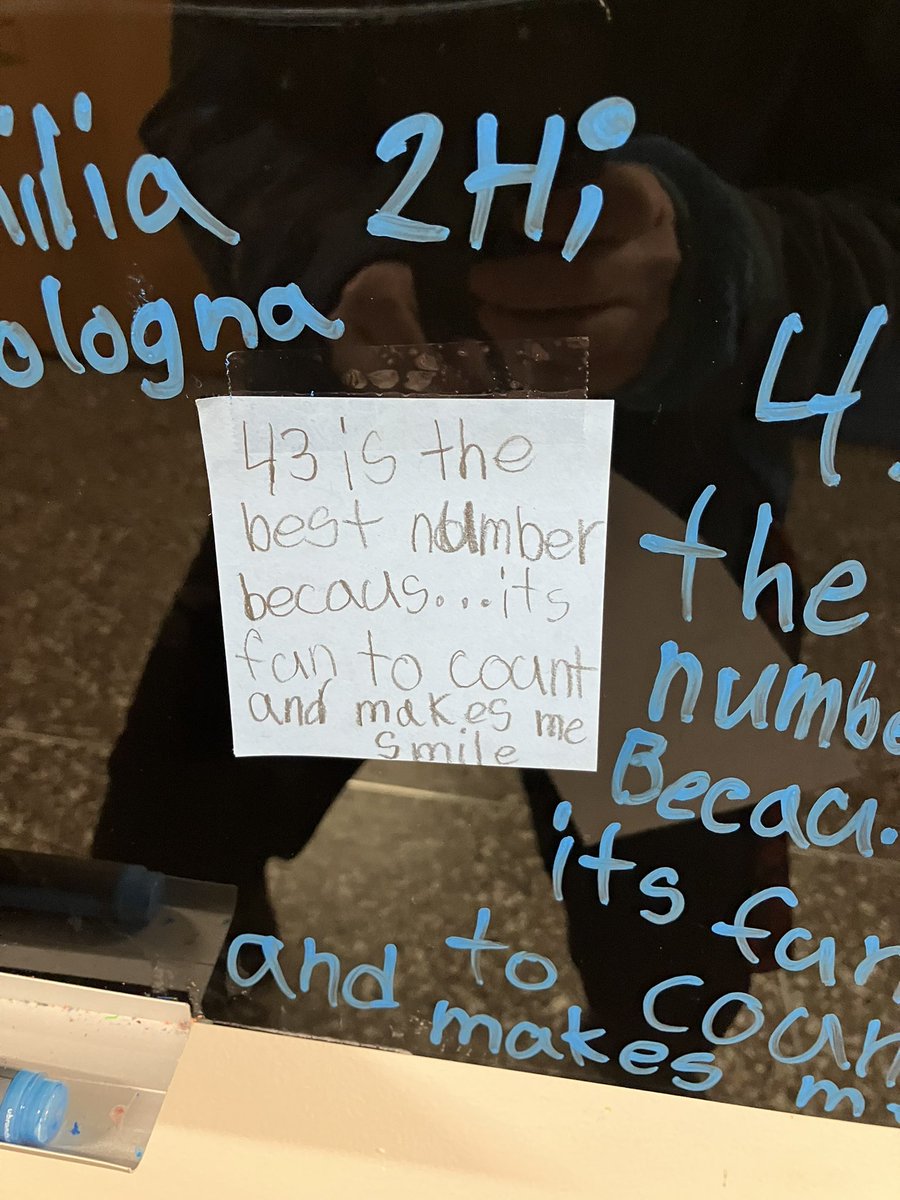 2Hi
ologna
43 is the
best number
becaus...its
fun to count
and makes me
smile
4
the
numbe
Becau.
its fun
and to coun
makes m